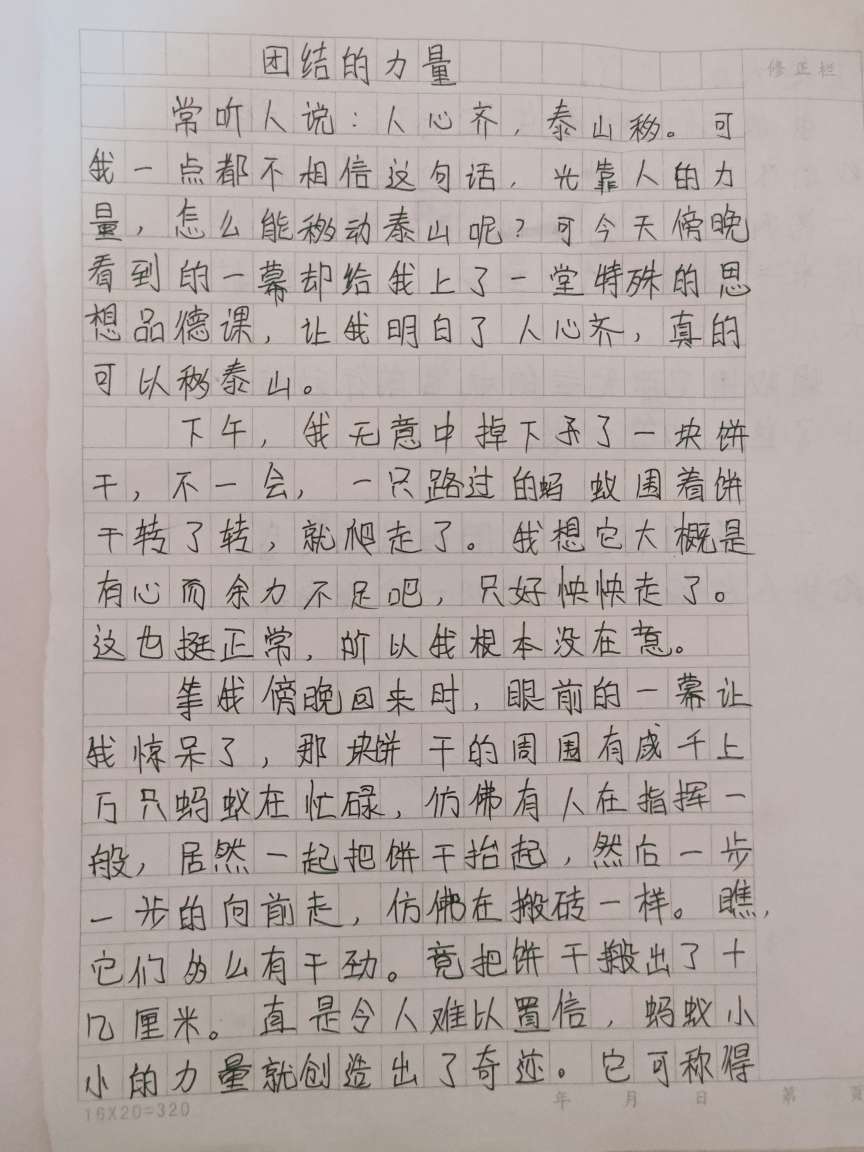 团结的力量
修正栏
常听人说：人心齐，泰山移。可
我一点都不相信这句话，光靠人的力
量，怎么能移动泰山呢？可今天傍晚
看到的一幕却给我上了一堂特殊的思
想品德课，让我明白了人心齐，真的
可以移泰山。
下午，我无意中掉下了一块饼
干，不一会，一只路过的蚂蚁围着饼
干转了转，就爬走了。我想它大概是
有心而余力不足吧，只好怏怏走了。
这也挺正常，所以我根本没在意。
等我傍晚回来时，眼前的一幕让
我惊呆了，那块饼干的周围有成千上
万只蚂蚁在忙碌，仿佛有人在指挥一
般，居然一起把饼干抬起，然后一步
一步的向前走，仿佛在搬砖一样。瞧，
它们多么有干劲。竟把饼干搬出了十
几厘米。真是令人难以置信，蚂蚁小
小的力量就创造出了奇迹。它可称得
16X20=320
年 月 日 第 页